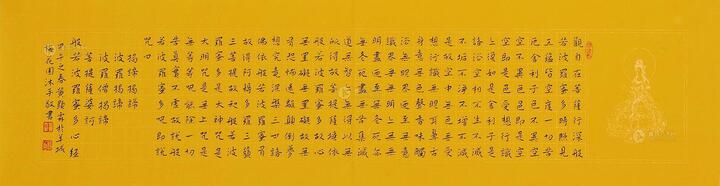 觀自在菩薩行深般
若波羅蜜多時照見
五蘊皆空度一切苦
厄舍利子色不異空
空不異色色即是空
空即是色受想行識
亦復如是舍利子是
諸法空相不生不滅
不垢不淨不增不減
是故空中無色無受
想行識無眼耳鼻舌
身意無色聲香味觸
法無眼界乃至無意
識界無無明亦無無
明盡乃至無老死亦
無老死盡無苦集滅
道無智亦無得以無
所得故菩提薩埵依
般若波羅蜜多故心
無罣礙無罣礙故無
有恐怖遠離顛倒夢
想究竟涅槃三世諸
佛依般若波羅蜜多
故得阿耨多羅三藐
三菩提故知般若波
羅蜜多是大神咒是
大明咒是無上咒是
無等等咒能除一切
苦真實不虛故說般
若波羅蜜多咒即說
咒曰
揭諦揭諦
波羅揭諦
波羅僧揭諦
菩提薩婆訶
般若波羅蜜多心經
甲午之春黄霖於羊城
梅花園沐手敬書